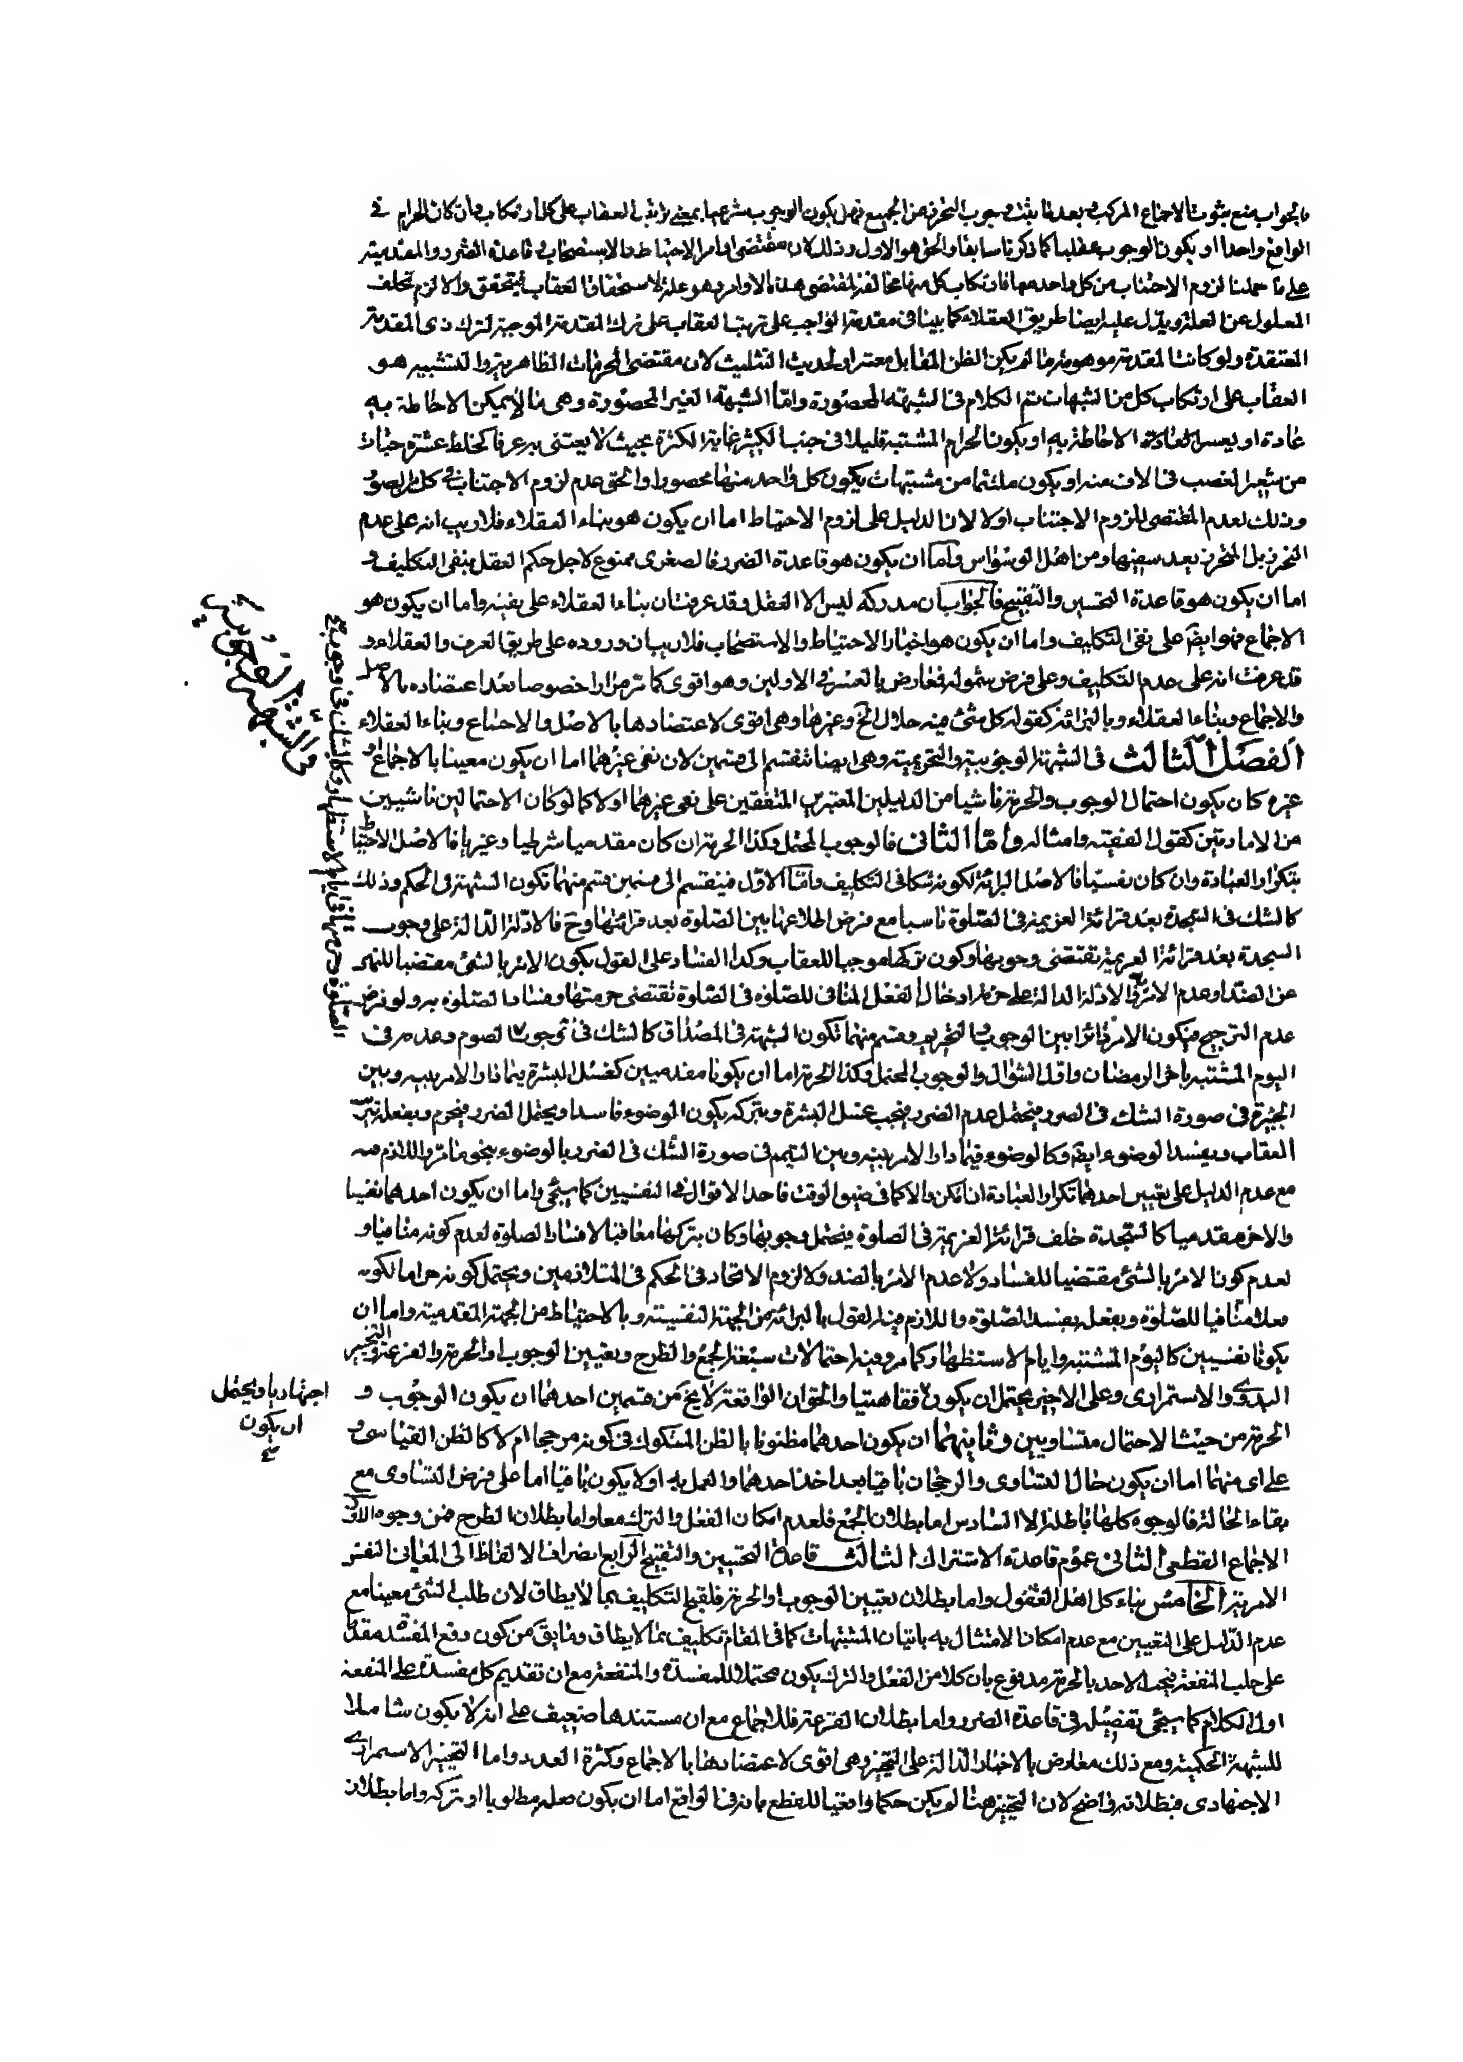 بالجواب بمنع ثبوت الاجماع المركب وبعد ما يثبت وجوب التحرز عن الجميع فهل يكون الوجوب شرعيا بمعنى ترتب العقاب على كل ارتكاب وان كان الحرام في
الواقع واحدا او يكون الوجوب عقليا كما ذكرنا سابقا والحق هو الاول وذلك لان مقتضى اوامر الاحتياط والاستصحاب وقاعدة الضرر والمقدمية
على ما حملنا لزوم الاجتناب من كل واحد منهما فارتكاب كل منها مخالفة لمقتضى هذه الاوامر وهو علة لاستحقاق العقاب فيتحقق والا لزم تخلف
المعلول عن العلة ويدل عليه ايضا طريقة العقلاء كما بينا في مقدمة الواجب على ترتب العقاب على ترك المقدمة الموجبة لترك ذي المقدمة
المعتقدة ولو كانت المقدمة موهومة ما لم يكن الظن المقابل معتبرا ولحديث التثليث لان مقتضى المحرمات الظاهرية والتشبيه هو
العقاب على ارتكاب كل من الشبهات تم الكلام في الشبهة المحصورة واما الشبهة الغير المحصورة وهي ما لا يمكن الاحاطة به
عادة او يعسر العادة الاحاطة به او يكون الحرام المشتبه قليلا في جنب الكثير غاية الكثرة بحيث لا يعتنى به عرفا كخلط عشرة حبات
من شعير الغصب في الاف منه او يكون ملتئما من مشتبهات يكون كل واحد منها محصورا والحق عدم لزوم الاجتناب في كل الصور
وذلك لعدم المقتضى للزوم الاجتناب اولا لان الدليل على لزوم الاحتياط اما ان يكون هو بناء العقلاء فلا ريب انه على عدم
التحرز بل المتحرز يعد سفيها ومن اهل الوسواس واما ان يكون هو قاعدة الضرر فالصغرى ممنوع لاجل حكم العقل بنفي التكليف و
اما ان يكون هو قاعدة التحسين والتقبيح فالجواب ان مدركه ليس الا العقل وقد عرفت ان بناء العقلاء على نفيه واما ان يكون هو
الاجماع فهو ايضا على نفي التكليف واما ان يكون هو اخبار الاحتياط والاستصحاب فلا ريب ان وروده على طريق العرف والعقلاء و
قد عرفت انه على عدم التكليف وعلى فرض شموله فمعارض بالعسر في الاولين وهو اقوى كما مر مرارا خصوصا بعد اعتضاده بالاصل
والاجماع وبناء العقلاء وبالبرائة كقوله كل شئ فيه حلال الخ وغيرها وهي اقوى لاعتضادها بالاصل والاجماع وبناء العقلاء
الفصل الثالث في الشبهة الوجوبية والتحريمية وهي ايضا تنقسم الى قسمين لان نفي غيرهما اما ان يكون معينا بالاجماع او
غيره كان يكون احتمال الوجوب والحرمة ناشيا من الدليلين المعتبرين المتفقين على نفي غيرهما اولا كما لو كان الاحتمالين ناشيين
من الامارتين كقول الفقيه وامثاله واما الثاني فالوجوب المحتمل وكذا الحرمة ان كان مقدميا شرطيا وغيريا فالاصل الاحتياط
بتكرار العبادة وان كان نفسيا فالاصل البرائة لكونه شكا في التكليف واما الاول فينقسم الى قسمين قسم منهما تكون الشبهة في الحكم وذلك
كالشك في السجدة بعد قرائة العزيمة في الصلوة ناسيا مع فرض اطلاعها بين الصلوة بعد قرائتها وح فالادلة الدالة على وجوب
السجدة بعد قرائة العزيمة تقتضي وجوبها وكون تركها موجبا للعقاب وكذا الفساد على القول بكون الامر بالشئ مقتضيا للنهي
عن الضد او عدم الامر به والادلة الدالة على حرمة ادخال الفعل المنافي للصلوة في الصلوة تقتضي حرمتها وفساد الصلوة به ولو فرض
عدم الترجيح فيكون الامر دائرا بين الوجوب والتحريم وقسم منهما تكون الشبهة في المصداق كالشك في وجوب الصوم وعدمه في
اليوم المشتبه باخر الرمضان واول الشوال والوجوب المحتمل وكذا الحرمة اما ان يكونا مقدميين كغسل البشرة فيما دار الامر بينه وبين
الجبيرة في صورة الشك في الضرر فيحتمل عدم الضرر فيجب غسل البشرة وبتركه يكون الوضوء فاسدا ويحتمل الضرر فيحرم وبفعله يترتب
العقاب ويفسد الوضوء ايضا وكالوضوء فيما دار الامر بينه وبين التيمم في صورة الشك في الضرر بالوضوء بنحو ما مر واللازم فيه
مع عدم الدليل على تعيين احدهما تكرار العبادة ان امكن والا كما في ضيق الوقت فاحد الاقوال في النفسيين كما سيجئ واما ان يكون احدهما نفسيا
والاخر مقدميا كالسجدة خلف قرائة العزيمة في الصلوة فيحتمل وجوبها وكان بتركها معاقبا لا فساد الصلوة لعدم كونه منافيا و
لعدم كون الامر بالشئ مقتضيا للفساد ولا عدم الامر بالضد ولا لزوم الاتحاد في الحكم في المتلازمين ويحتمل كونه حراما لكونه
فعلا منافيا للصلوة وبفعله يفسد الصلوة واللازم فيه القول بالبرائة من الجهة النفسية وبالاحتياط من الجهة المقدمية واما ان
يكونا نفسيين كاليوم المشتبه وايام الاستظهار وكما مر وفيه احتمالات سبعة الجمع والطرح وتعيين الوجوب او الحرمة والقرعة والتخيير
البدوي والاستمراري وعلى الاخير يحتمل ان يكون فقاهتيا والحق ان الواقعة لا يخ من قسمين احدهما ان يكون الوجوب و
الحرمة من حيث الاحتمال متساويين وثانيهما ان يكون احدهما مظنونا بالظن المشكوك في كونه مرجحا ام لا كالظن القياسي و
على اي منهما اما ان يكون حال التساوي والرجحان باقيا بعد اخذ احدهما والعمل به اولا يكون باقيا اما على فرض التساوي مع
بقاء الحالة فالوجوه كلها باطلة الا السادس اما بطلان الجمع فلعدم امكان الفعل والترك معا واما بطلان الطرح فمن وجوه الاول
الاجماع القطعي الثاني عموم قاعدة الاشتراك الثالث قاعدة التحسين والتقبيح الرابع انصراف الالفاظ الى المعاني النفس
الامرية الخامس بناء كل اهل العقول واما بطلان تعيين الوجوب او الحرمة فلقبح التكليف بما لا يطاق لان طلب الشئ معينا مع
عدم الدليل على التعيين مع عدم امكان الامتثال به باتيان المشتبهات كما في المقام تكليف بما لا يطاق وما يق من كون دفع المفسدة مقدما
على جلب المنفعة فيجب الاخذ بالحرمة مدفوع بان كلا من الفعل والترك يكون محتملا للمفسدة والمنفعة مع ان تقديم كل مفسدة على المنفعة
اول الكلام كما سيجئ تفصيله في قاعدة الضرر واما بطلان القرعة فللاجماع مع ان مستندها ضعيف على انه لا يكون شاملا
للشبهة الحكمية ومع ذلك معارض بالاخبار الدالة على التخيير وهي اقوى لاعتضادها بالاجماع وكثرة العدد واما التخيير الاستمراري
الاجتهادي فبطلانه واضح لان التخيير هنا لم يكن حكما واقعيا للقطع بانه في الواقع اما ان يكون فعله مطلوبا او تركه واما بطلان
في الشبهة الوجوبية
الصلوة وحرمتها في ايام الاستظهار وكالشك في وجوب
اجتهاديا ويحتمل
ان يكون